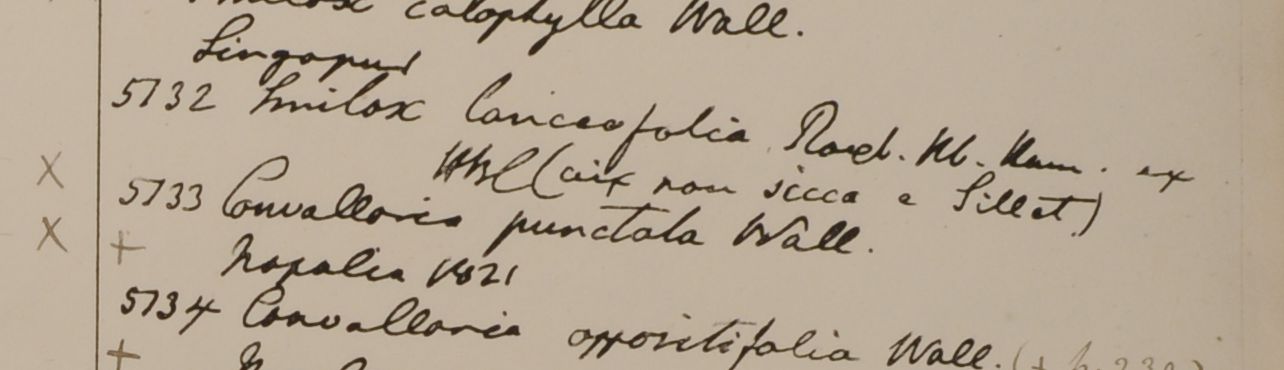 Smilax calophylla Wall.
Singapur
5732 Smilax lanceaefolia Roxb. Hb. Ham. ex
HBC (aix non sicca e Sillet)
5733 Convallaria punctata Wall.
+ Napalia 1821
5734 Convallaria oppositifolia Wall.
+